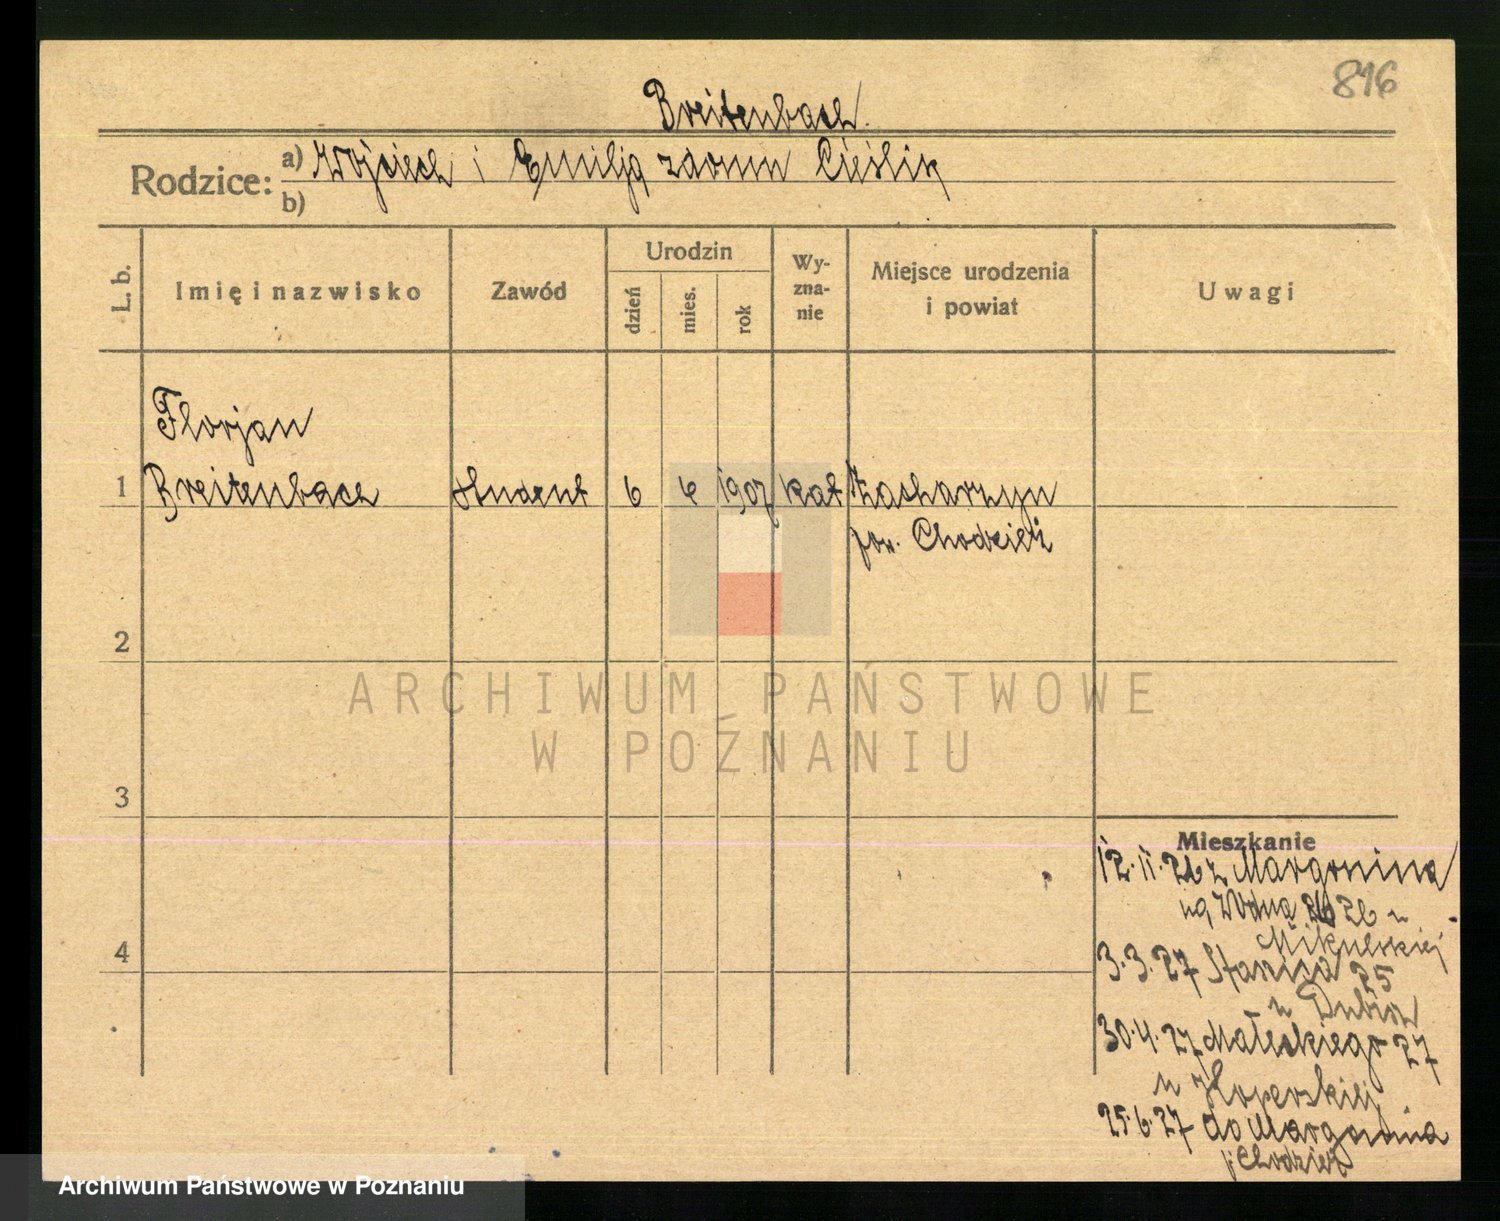 816
Breitenbach.
Rodzice: a) Wojciech i Emilja zdomu Cieślik
b)
L. b.
Imię i nazwisko
Zawód
Urodzin
dzień
mies.
rok
Wy-
zna-
nie
Miejsce urodzenia
i powiat
Uwagi
Florjan
1 Breitenbach student 6 4 1907 kat Zacharzyn
pow. Chodzież
2
3
4
Mieszkanie
12.11.26 z Margonina
na Wodną 26 u
Mikulskiej
3.3.27 25
u
30.4.27 Małeckiego 27
u
25.6.27 do Margonina
p. Chodzież
ARCHIWUM PAŃSTWOWE
W POZNANIU
Archiwum Państwowe w Poznaniu